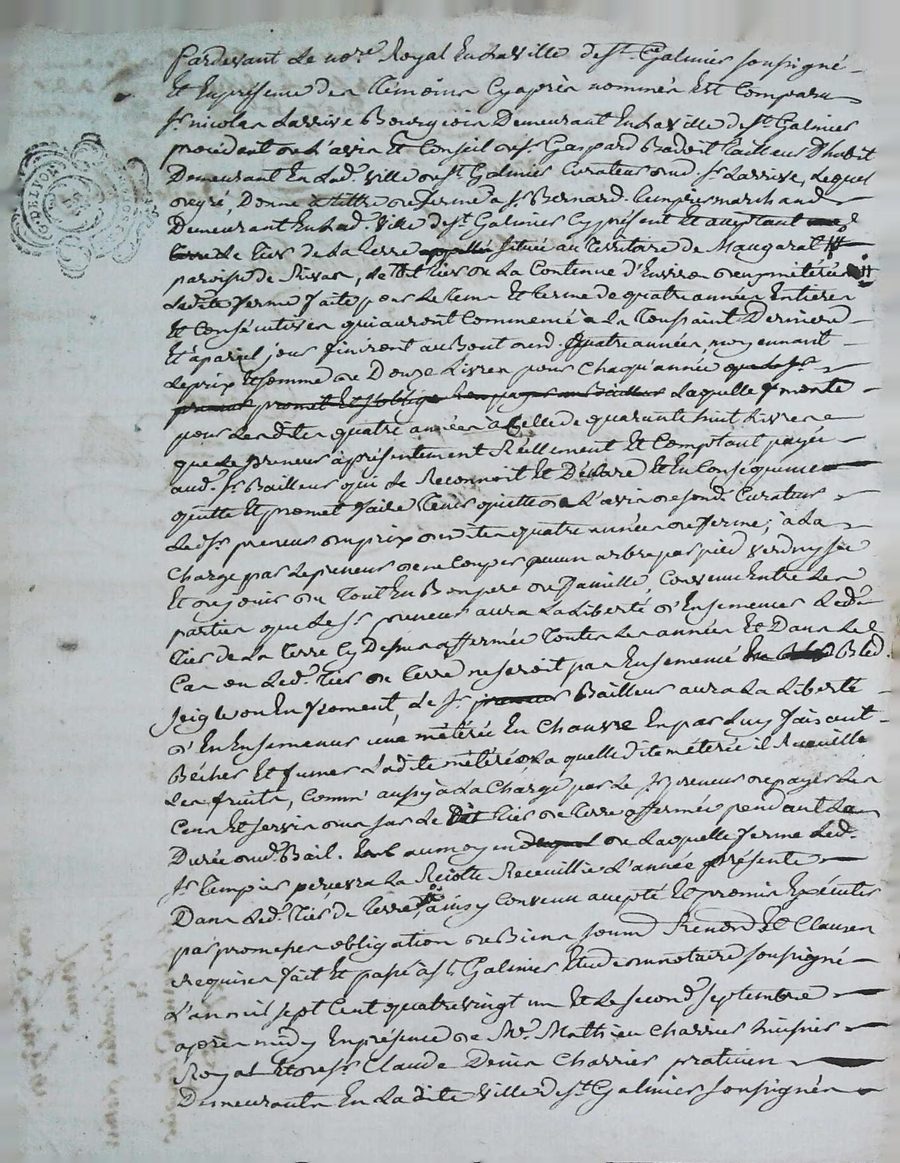 Pardevant Le no.re Royal En La ville de st. Galmier soussigné
Et En présence des Temoins Cy après nommés Est Comparu
sr. nicolas Larrive Bourgeois Demeurant En La ville de st. Galmier
procédant de L'avis Et Conseil de sr. Gaspard Badoit Tailleur D'habit
Demeurant En Lad. ville de st. Galmier Curateur dud. sr. Larrive, Lequel
de gré, Donne à titre de ferme à sr. Bernard marchand
Demeurant En Lad. ville de st. Galmier Cy présent Et acceptant
Le tiers de La terre appellée située au territoire de Maugaral
paroisse de Rivas, Le dit tiers de La Contenue d'Environ
Ladite ferme faite pour Le tems Et terme de quatre années Entieres
Et Consécutives qui auront Commencé à La Toussaint Derniere
Et à pareil jour finiront au Bout desd. quatre années moyennant
Le prix Et somme de Douze Livres pour Chaqu'année que Le sr.
preneur promet Et s'oblige payer au Bailleur Laquelle monte
pour Lesdites quatre années à Celle de quarante huit Livres
que Le preneur à présentement Réellement Et Comptant payée
aud. sr. Bailleur qui Le Reconnoit Et Déclare Et En Conséquence
quitte Et promet faire Tenir quitte de L'avis de sond. Curateur
Led. sr. preneur du prix desdites quatre années de ferme; à La
Charge par Le preneur de ne Couper aucun arbre par pied verd ny sec
Et de jouir du tout En Bon pere de famille, Convenu Entre Les
parties que Le sr. preneur aura La Liberté d'Ensemencer Led.
tiers de La terre Cy Dessus affermée Toutes Les années Et Dans Le
Cas ou Led. tiers de terre ne seroit pas Ensemencé En Bled
seigle ou En froment, Le sr. preneur Bailleur aura La Liberté
d'En Ensemencer une métérée En Chanvre En par Luy faisant
Bécher Et fumer Ladite métérée de La quelle dite métérée il Recueille
Les fruits, Comm' aussy à La Charge par Le sr. preneur de payer Les
Cens Et servis dus sur Le Dit tiers de terre affermée pendant La
Durée dud. Bail. au moyen de Laquelle ferme Led.
sr. percevra La Récolte Recueillie L'année présente
Dans Led. tiers de terre, ainsy Convenu accepté Et promis Exécuter
par promesses obligation de Biens soumd. Renond. Et Clauses
requises fait Et passé à st. Galmier Etude du notaire soussigné
L'an mil sept Cent quatre vingt un Et Le second septembre
après midy En présence de Me. Mathieu Charrier huissier
Royal Et de sr. Claude Denis Charrier praticien
Demeurants En La dite ville de st. Galmier soussignés